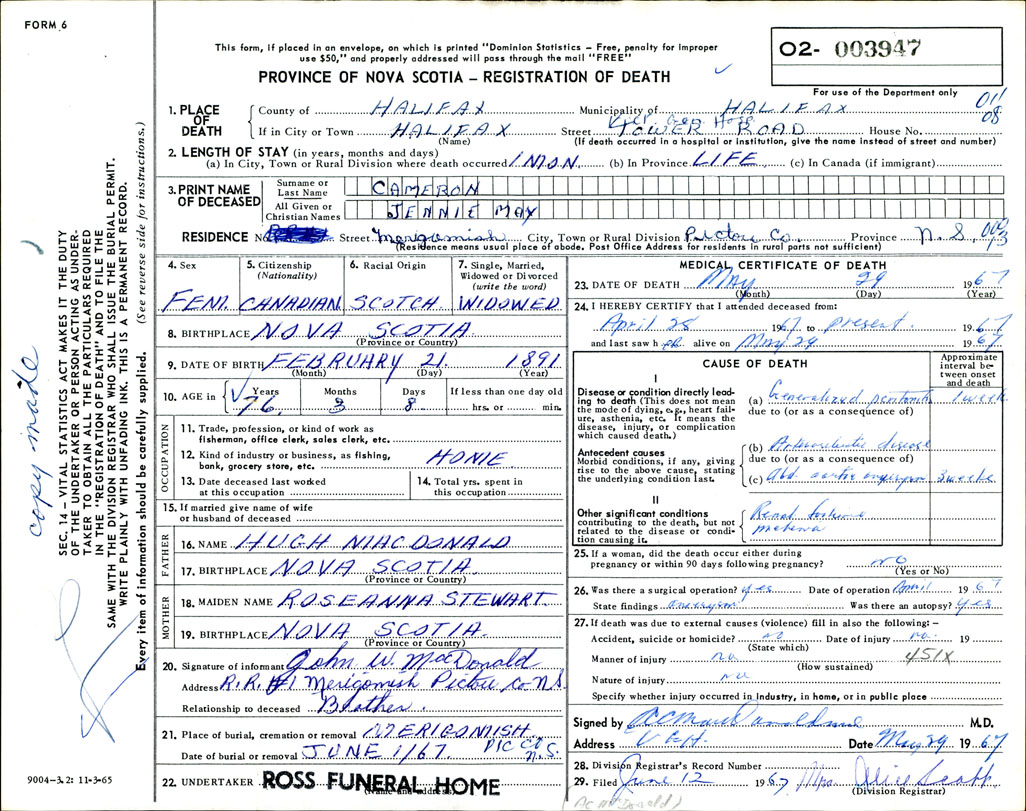 FORM 6
This form, if placed in an envelope, on which is printed "Dominion Statistics - Free, penalty for improper
use $50," and properly addressed will pass through the mail "FREE"
PROVINCE OF NOVA SCOTIA - REGISTRATION OF DEATH
02- 003947
For use of the Department only
011
08
1. PLACE OF DEATH
County of HALIFAX Municipality of HALIFAX
If in City or Town HALIFAX Street TOWER ROAD House No.
(Name) (If death occurred in a hospital or institution, give the name instead of street and number)
2. LENGTH OF STAY (in years, months and days)
(a) In City, Town or Rural Division where death occurred 1 MON. (b) In Province LIFE (c) In Canada (if immigrant)
3. PRINT NAME OF DECEASED
Surname or Last Name CAMERON
All Given or Christian Names JENNIE MAY
RESIDENCE No. Street Merigomish City, Town or Rural Division Pictou Co. Province N.S.
(Residence means usual place of abode. Post Office Address for residents in rural parts not sufficient)
4. Sex FEM.
5. Citizenship (Nationality) CANADIAN
6. Racial Origin SCOTCH
7. Single, Married, Widowed or Divorced (write the word) WIDOWED
8. BIRTHPLACE NOVA SCOTIA
(Province or Country)
9. DATE OF BIRTH FEBRUARY 21. 1891
(Month) (Day) (Year)
10. AGE in Years 76 Months 3 Days 8 If less than one day old hrs. or min.
OCCUPATION
11. Trade, profession or kind of work as
fisherman, office clerk, sales clerk, etc.
12. Kind of industry or business, as fishing,
bank, grocery store, etc. HOME
13. Date deceased last worked
at this occupation
14. Total yrs. spent in
this occupation
15. If married give name of wife
or husband of deceased
FATHER
16. NAME HUGH MACDONALD
17. BIRTHPLACE NOVA SCOTIA
(Province or Country)
MOTHER
18. MAIDEN NAME ROSEANNA STEWART
19. BIRTHPLACE NOVA SCOTIA
(Province or Country)
20. Signature of informant John W. MacDonald
Address R.R.#1 Merigomish Pictou Co N.S.
Relationship to deceased Brother.
21. Place of burial, cremation or removal MERIGOMISH
PIC CO N.S.
Date of burial or removal JUNE 1/67
22. UNDERTAKER ROSS FUNERAL HOME
(Name and address)
MEDICAL CERTIFICATE OF DEATH
23. DATE OF DEATH May 29 1967
(Month) (Day) (Year)
24. I HEREBY CERTIFY that I attended deceased from:
April 28 1967 to present. 1967
and last saw her alive on May 29 1967
CAUSE OF DEATH
Approximate interval between onset and death
I
Disease or condition directly leading to death (This does not mean the mode of dying, e.g., heart failure, asthenia, etc. It means the disease, injury, or complication which caused death.)
(a) Generalized peritonitis 1 week
due to (or as a consequence of)
Antecedent causes
Morbid conditions, if any, giving rise to the above cause, stating the underlying condition last.
(b) disease
due to (or as a consequence of)
(c) Abd aortic aneurysm 3 weeks
II
Other significant conditions
contributing to the death, but not related to the disease or condition causing it.
Renal
25. If a woman, did the death occur either during
pregnancy or within 90 days following pregnancy? no
(Yes or No)
26. Was there a surgical operation? yes Date of operation April 1967
State findings aneurysm Was there an autopsy? yes
27. If death was due to external causes (violence) fill in also the following:-
Accident, suicide or homicide? no Date of injury na 19
(State which)
Manner of injury na 451X
(How sustained)
Nature of injury na
Specify whether injury occurred in industry, in home, or in public place
Signed by M.D.
Address Date May 29 1967
28. Division Registrar's Record Number
29. Filed June 12 1967
(Division Registrar)
copy made
SEC. 14 - VITAL STATISTICS ACT MAKES IT THE DUTY
OF THE UNDERTAKER OR PERSON ACTING AS UNDER-
TAKER TO OBTAIN ALL THE PARTICULARS REQUIRED
IN THE "REGISTRATION OF DEATH" AND TO FILE THE
SAME WITH THE DIVISION REGISTRAR WHO SHALL ISSUE THE BURIAL PERMIT.
WRITE PLAINLY WITH UNFADING INK. THIS IS A PERMANENT RECORD.
Every item of information should be carefully supplied. (See reverse side for instructions.)
9004-3.2: 11-3-65